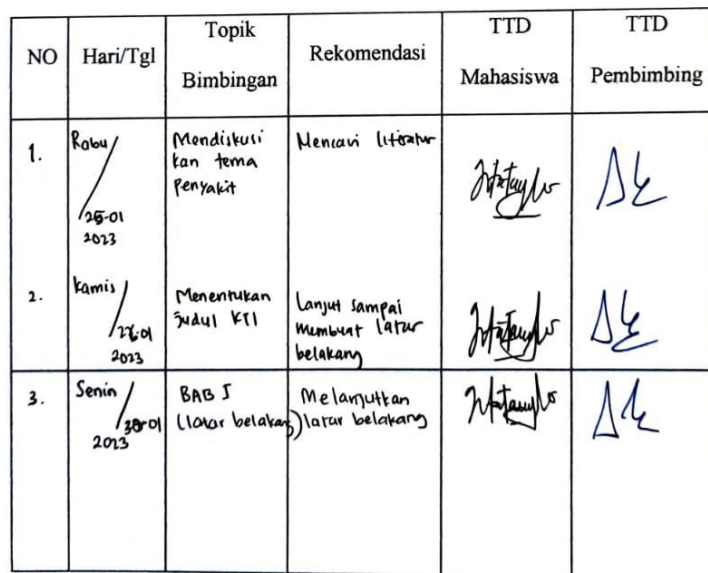 NO
Hari/Tgl
Topik
Bimbingan
Rekomendasi
TTD
Mahasiswa
TTD
Pembimbing
1.
Rabu/
25-01
2023
Mendiskusi
kan tema
Penyakit
Mencari literatur
2.
Kamis/
26-01
2023
Menentukan
Judul KTI
Lanjut sampai
membuat latar
belakang
3.
Senin/
30-01
2023
BAB I
(latar belakang)
Melanjutkan
latar belakang